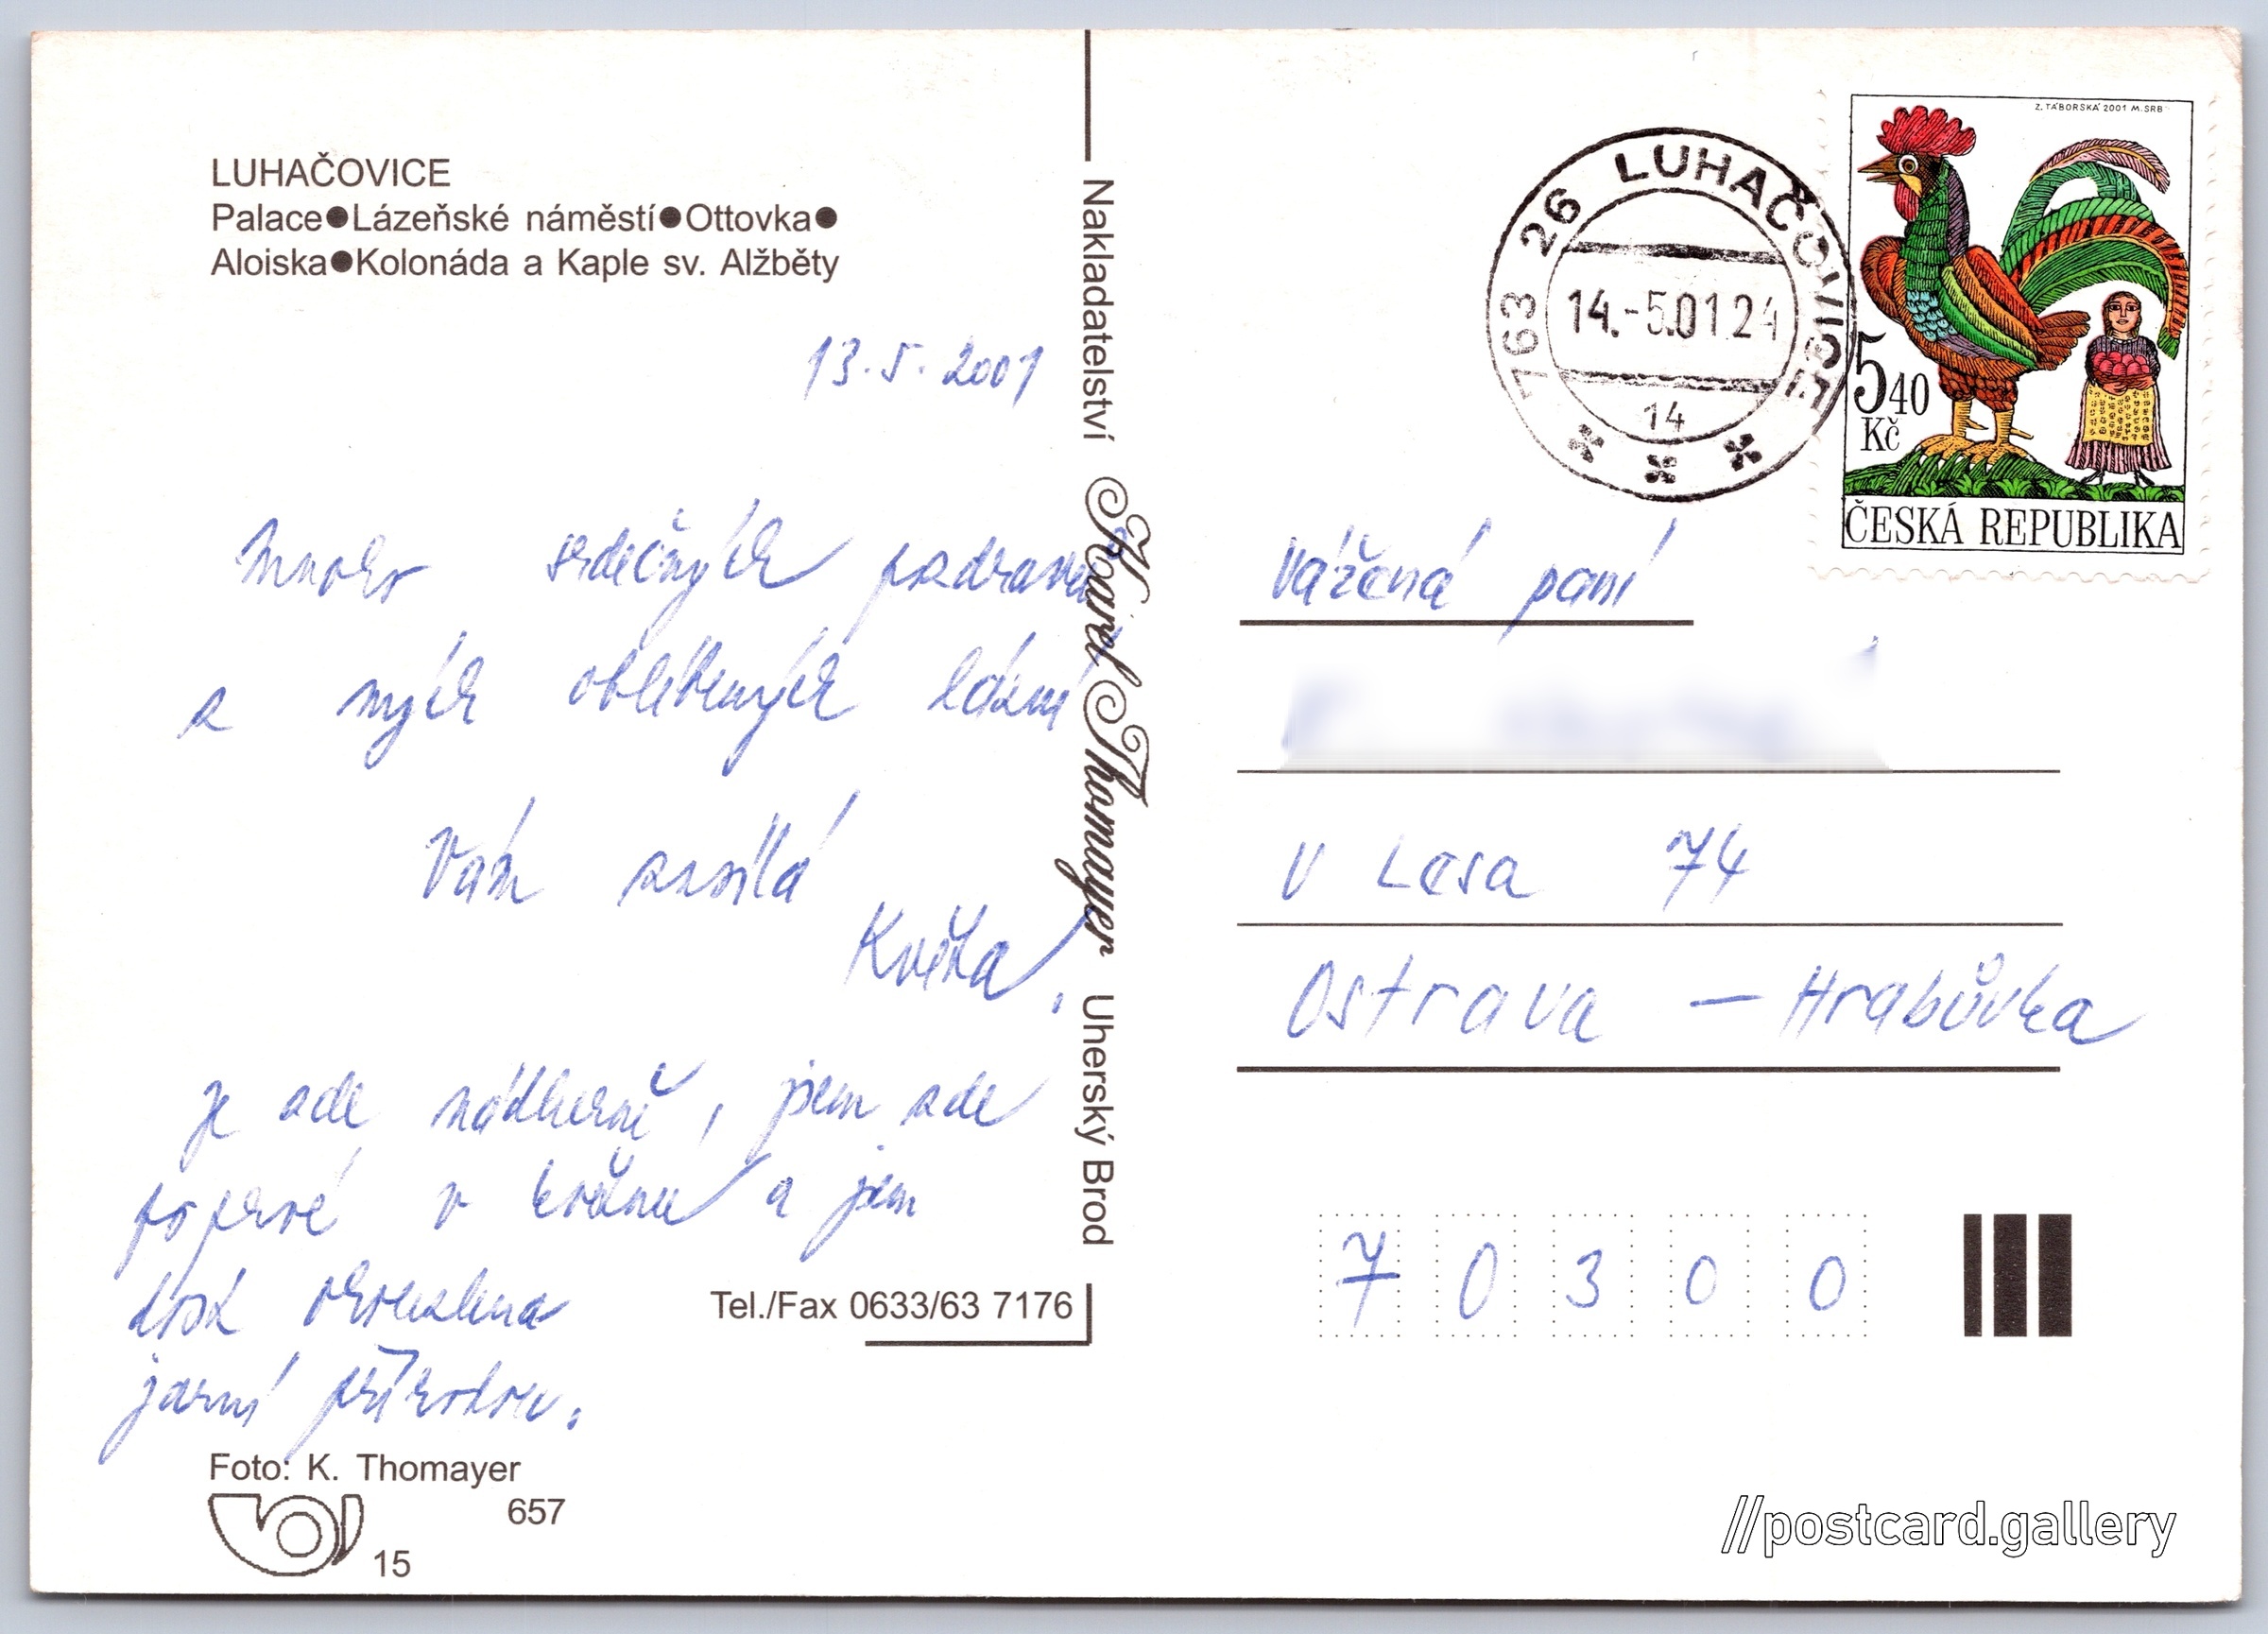 LUHAČOVICE
Palace●Lázeňské náměstí●Ottovka●
Aloiska●Kolonáda a Kaple sv. Alžběty
13.5.2001
Mnoho srdečných pozdravů
z mých oblíbených lázní
Vám zasílá
Květa,
je zde nádherně, jsem zde
poprvé v květnu a jsem
dost okouzlena
jarní přírodou.
Foto: K. Thomayer
657
15
Nakladatelství Karel Thomayer Uherský Brod
Tel./Fax 0633/63 7176
763 26 LUHAČOVICE
14.-5.01.24
14
Z. TÁBORSKÁ 2001 M. SRB
540
Kč
ČESKÁ REPUBLIKA
Vážená paní
V Lesa 74
Ostrava - Hrabůvka
7 0 3 0 0
//postcard.gallery